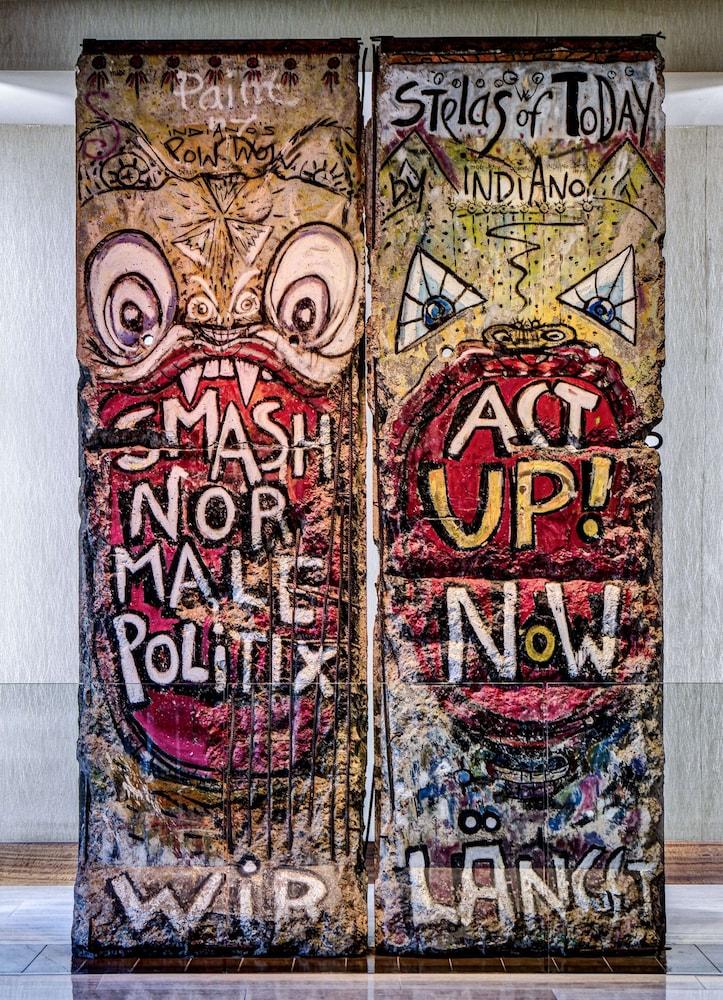 Paint
INDIANO'S
POW WOW
SMASH
NOR
MALE
POLiTiX
WiR
STELAS of TODAY
by INDIANO
ACT
UP!
NoW